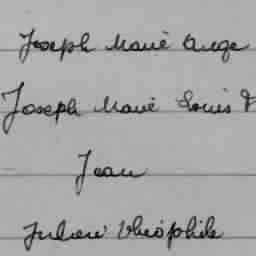 Joseph Marie Ange
Joseph Marie Louis F
Jean
Julien Théophile